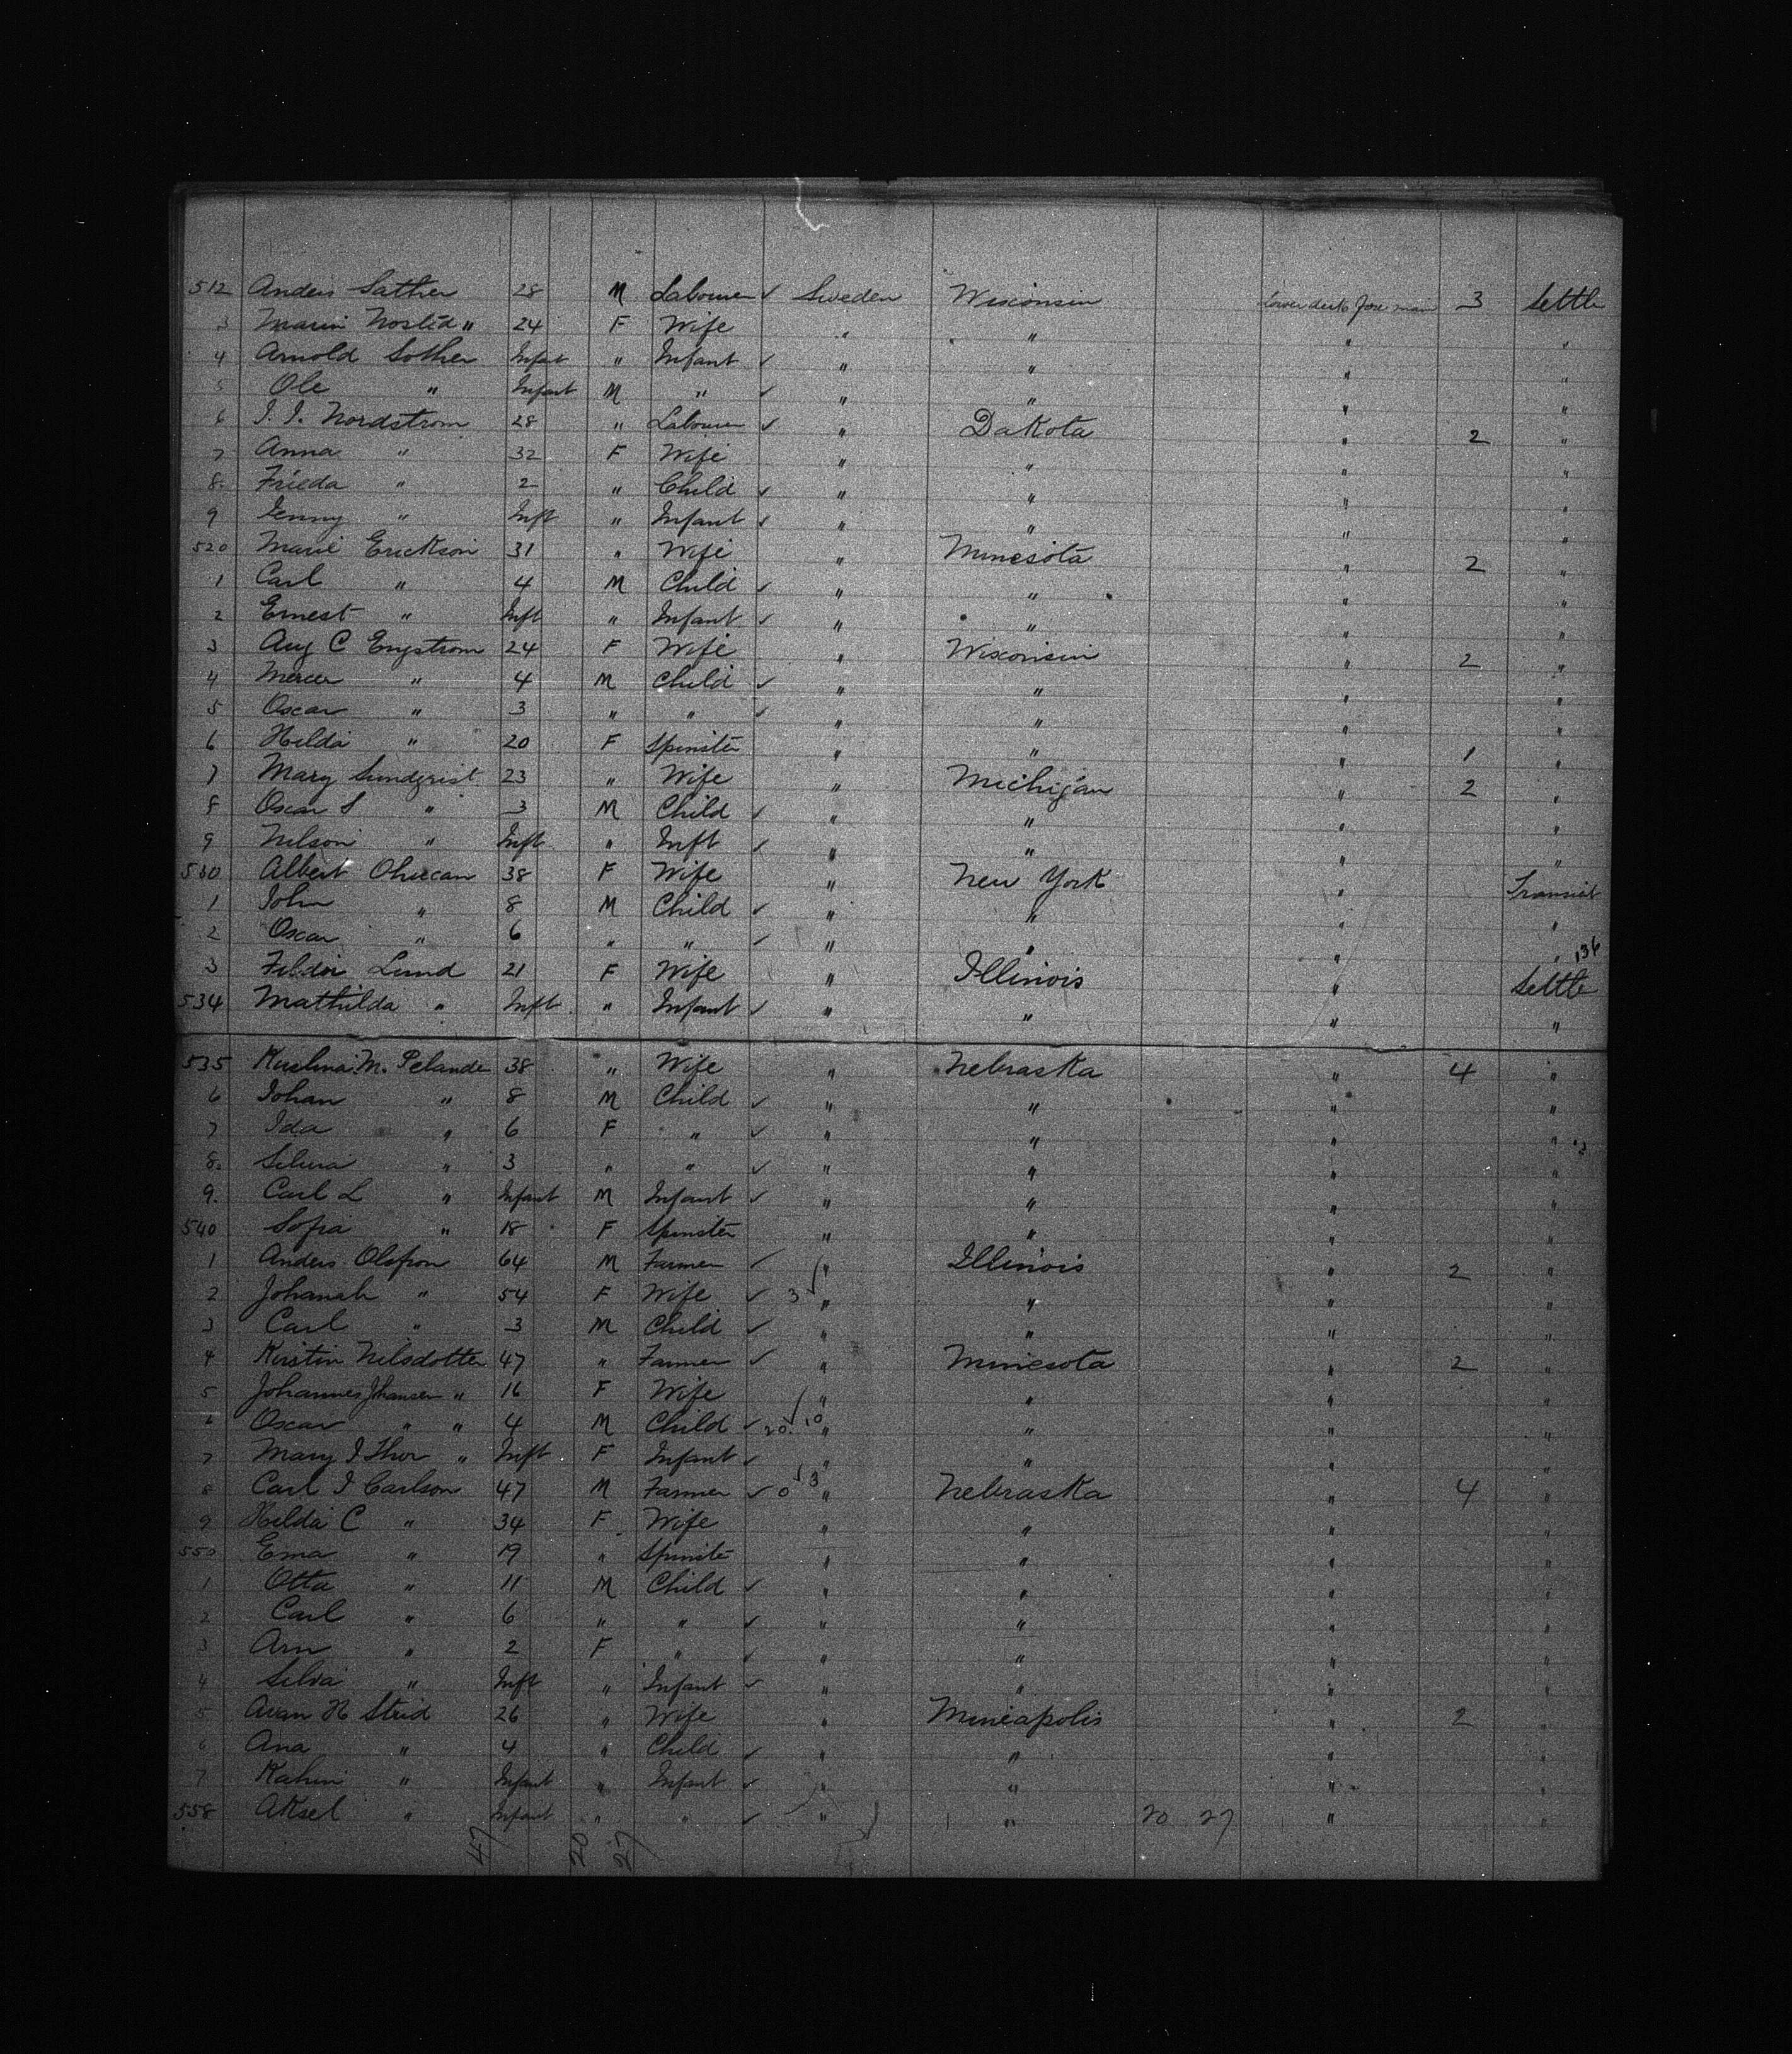 512 Anders Sather 28 M Labourer ✓ Sweden Wisconsin Lower deck Fore main 3 Settle
3 Marin " 24 F Wife " " " "
4 Arnold Sother Infant " Infant ✓ " " " "
5 Ole " Infant M " ✓ " " " "
6 I. I. Nordstrom 28 " Labourer ✓ " Dakota " 2 "
7 Anna " 32 F Wife " " " "
8 Frieda " 2 " Child ✓ " " " "
9 Jenny " Inft " Infant ✓ " " " "
520 Marie Erickson 31 " Wife " Minesota " 2 "
1 Carl " 4 M Child ✓ " " " "
2 Ernest " Inft " Infant ✓ " " " "
3 Aug C Engstrom 24 F Wife " Wisconsin " 2 "
4 Mercer " 4 M Child ✓ " " " "
5 Oscar " 3 " " ✓ " " " "
6 Hilda " 20 F Spinster " " " 1 "
7 Mary Sundqrist 23 " Wife " Michigan " 2 "
8 Oscar S " 3 M Child ✓ " " " "
9 Nelson " Inft " Inft ✓ " " " "
530 Albert 38 F Wife " New York " Transit
1 John " 8 M Child ✓ " " " "
2 Oscar " 6 " " ✓ " " " " 136
3 Lund 21 F Wife " Illinois " Settle
534 Mathilda " Inft " Infant ✓ " " " "
535 M. Pelander 38 " Wife " Nebraska " 4 "
6 Johan " 8 M Child ✓ " " " "
7 Ida " 6 F " ✓ " " " "
8 " 3 " " ✓ " " " "
9 Carl L " Infant M Infant ✓ " " " "
540 Sofia " 18 F Spinster " " " "
1 Anders Olsson 64 M Farmer ✓ " Illinois " 2 "
2 Johanah " 54 F Wife ✓ 3 " " " "
3 Carl " 3 M Child ✓ " " " "
4 Kirstin Nilsdotter 47 " Farmer ✓ " Minesota " 2 "
5 Johannes Jhansen " 16 F Wife " " " "
6 Oscar " " 4 M Child ✓ 20 10 " " " "
7 Mary I Thor " Inft F Infant ✓ " " " "
8 Carl I Carlson 47 M Farmer ✓ 0 3 " Nebraska " 4 "
9 Hilda C " 34 F Wife " " " "
550 Ema " 19 " Spinster " " " "
1 Otta " 11 M Child ✓ " " " "
2 Carl " 6 " " ✓ " " " "
3 Arn " 2 F " ✓ " " " "
4 Silvia " Inft " Infant ✓ " " " "
5 Avan H Strid 26 " Wife " Mineapolis " 2 "
6 Ana " 4 " Child ✓ " " " "
7 " Infant " Infant ✓ " " " "
558 Aksel " Infant " " ✓ " " 20 27 " "
47 20 27